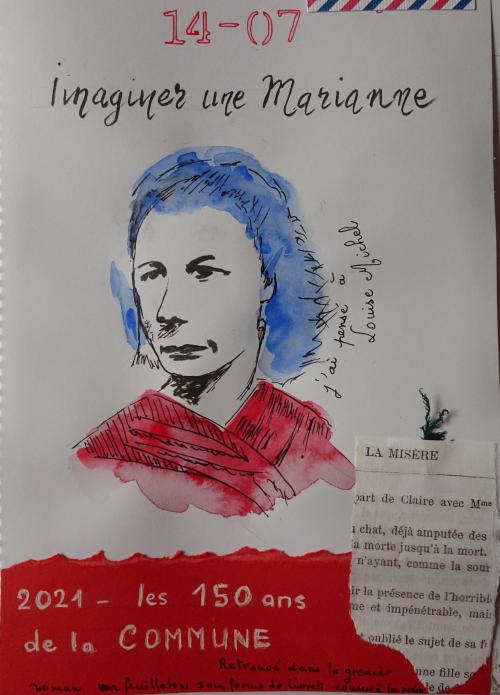 14-07
Imaginer une Marianne
j'ai pensé à
Louise Michel
LA MISÈRE
part de Claire avec Mme
chat, déjà amputée des
a morte jusqu'à la mort.
n'ayant, comme la sour
ir la présence de l'horribl
me et impénétrable, mai
t oublié le sujet de sa f
nne fille s
2021 - les 150 ans
de la COMMUNE
Retrouvé dans le grenier
roman en feuilleton sous forme de livrets